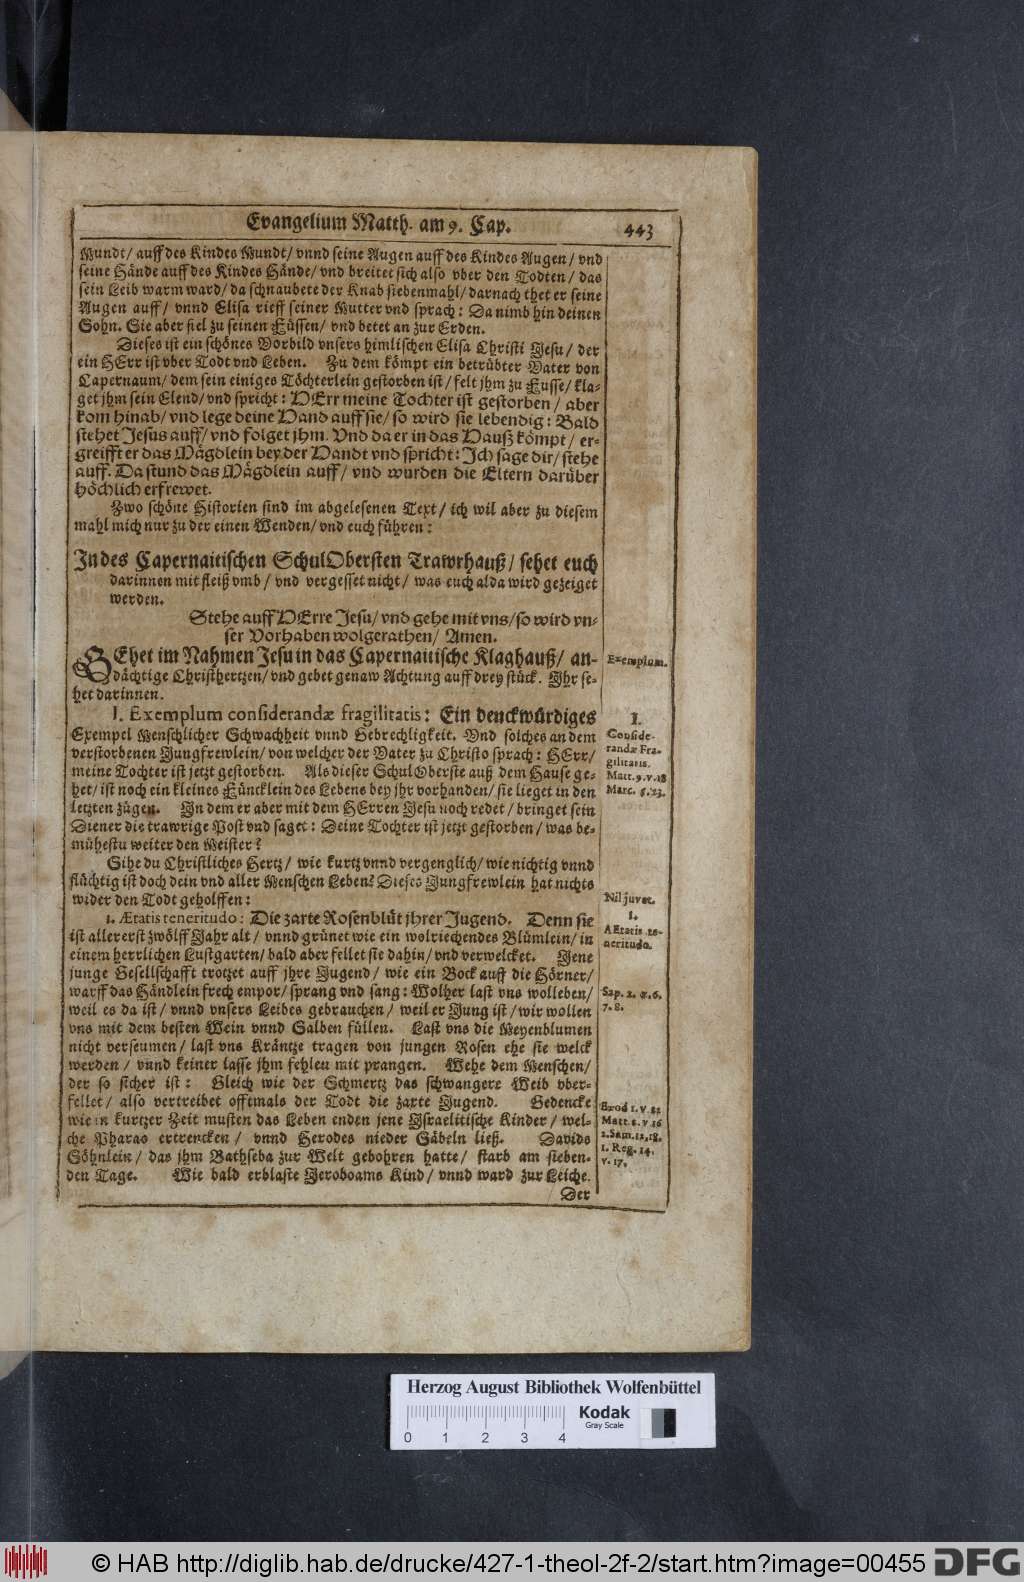 Evangelium Matth. am 9. Cap. 443
Mundt/ auff des Kindes Mundt/ vnnd seine Augen auff des Kindes Augen/ vnd
seine Hände auff des Kindes Hände/ vnd breitet sich also vber den Todten/ das
sein Leib warm ward/ da schnaubete der Knab siebenmahl/ darnach thet er seine
Augen auff/ vnnd Elisa rieff seiner Mutter vnd sprach: Da nimb hin deinen
Sohn. Sie aber fiel zu seinen Füssen/ vnd betet an zur Erden.
Dieses ist ein schönes Vorbild vnsers himlischen Elisa Christi Jesu/ der
ein HErr ist vber Todt vnd Leben. Zu dem kömpt ein betrübter Vater von
Capernaum/ dem sein einiges Töchterlein gestorben ist/ felt jhm zu Fusse/ kla-
get jhm sein Elend/ vnd spricht: HErr meine Tochter ist gestorben/ aber
kom hinab/ vnd lege deine Hand auff sie/ so wird sie lebendig: Bald
stehet Jesus auff/ vnd folget jhm. Vnd da er in das Hauß kömpt/ er-
greifft er das Mägdlein bey der Handt vnd spricht: Ich sage dir/ stehe
auff. Da stund das Mägdlein auff/ vnd wurden die Eltern darüber
höchlich erfrewet.
Zwo schöne Historien sind im abgelesenen Text/ ich wil aber zu diesem
mahl mich nur zu der einen Wenden/ vnd euch führen:
In des Capernaitischen SchulObersten Trawrhauß/ sehet euch
darinnen mit fleiß vmb/ vnd vergesset nicht/ was euch alda wird gezeiget
werden.
Stehe auff HErre Jesu/ vnd gehe mit vns/ so wird vn-
ser Vorhaben wolgerathen/ Amen.
GEhet im Nahmen Jesu in das Capernaitische Klaghauß/ an-
dächtige Christhertzen/ vnd gebet genaw Achtung auff drey stück. Ihr se-
het darinnen.
Exemplum.
I. Exemplum considerandæ fragilitatis: Ein denckwürdiges
Exempel Menschlicher Schwachheit vnnd Gebrechligkeit. Vnd solches an dem
verstorbenen Jungfrewlein/ von welcher der Vater zu Christo sprach: HErr/
meine Tochter ist jetzt gestorben. Als dieser SchulOberste auß dem Hause ge-
het/ ist noch ein kleines Füncklein des Lebens bey jhr vorhanden/ sie lieget in den
letzten zügen. In dem er aber mit dem HErren Jesu noch redet/ bringet sein
Diener die trawrige Post vnd saget: Deine Tochter ist jetzt gestorben/ was be-
mühestu weiter den Meister?
I.
Conside-
randæ Fra-
gilitatis.
Matt. 9. v. 18
Marc. 5. 23.
Sihe du Christliches Hertz/ wie kurtz vnnd vergenglich/ wie nichtig vnnd
flüchtig ist doch dein vnd aller Menschen Leben? Dieses Jungfrewlein hat nichts
wider den Todt geholffen:
Nil juvat.
1. Ætatis teneritudo: Die zarte Rosenblüt jhrer Jugend. Denn sie
ist allererst zwölff Jahr alt/ vnnd grünet wie ein wolriechendes Blümlein/ in
einem herrlichen Lustgarten/ bald aber fellet sie dahin/ vnd verwelcket. Jene
junge Gesellschafft trotzet auff jhre Jugend/ wie ein Bock auff die Hörner/
warff das Händlein frech empor/ sprang vnd sang: Wolher last vns wolleben/
weil es da ist/ vnnd vnsers Leibes gebrauchen/ weil er Jung ist/ wir wollen
vns mit dem besten Wein vnnd Salben füllen. Last vns die Meyenblumen
nicht verseumen/ last vns Kräntze tragen von jungen Rosen ehe sie welck
werden/ vnnd keiner lasse jhm fehlen mit prangen. Wehe dem Menschen/
der so sicher ist: Gleich wie der Schmertz das schwangere Weib vber-
fellet/ also vertreibet offtmals der Todt die zarte Jugend. Gedencke
wie in kurtzer Zeit musten das Leben enden jene Israelitische Kinder/ wel-
che Pharao ertrencken/ vnnd Herodes nieder Säbeln ließ. Davids
Söhnlein/ das jhm Bathseba zur Welt gebohren hatte/ starb am sieben-
den Tage. Wie bald erblaste Jeroboams Kind/ vnnd ward zur Leiche.
Der
1.
AEtatis te-
neritudo.
Sap. 2. 5. 6.
7. 8.
Exod 1. v. 22
Matt. 2. v 16
2. Sam. 12, 18.
1. Reg. 14.
v. 17.
Herzog August Bibliothek Wolfenbüttel
0 1 2 3 4
Kodak
Gray Scale
© HAB http://diglib.hab.de/drucke/427-1-theol-2f-2/start.htm?image=00455
DFG